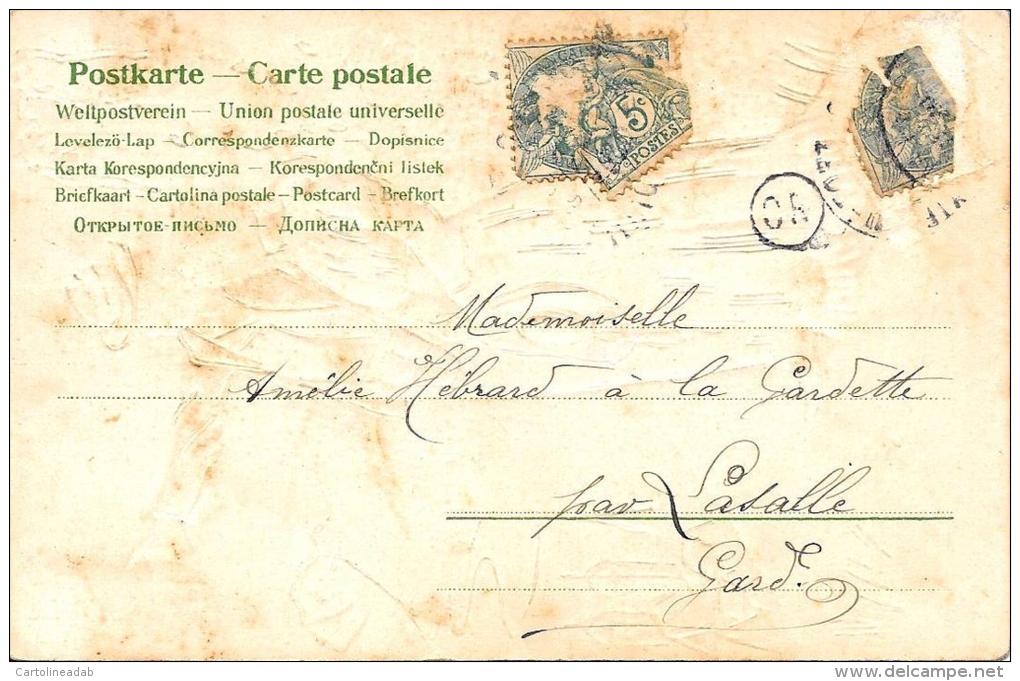 Postkarte — Carte postale
Weltpostverein — Union postale universelle
Levelező-Lap — Correspondenzkarte — Dopisnice
Karta Korespondencyjna — Korespondenční listek
Briefkaart — Cartolina postale — Postcard — Brefkort
Открытое-письмо — Дописна карта
5c
POSTES
OA
Mademoiselle
Amélie Hébrard à la Gardette
par Lasalle
Gard.
Cartolineadab
delcampe.net